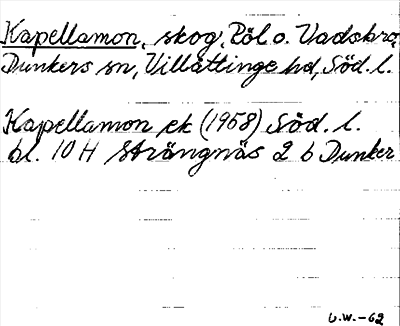 Kapellamon, skog, Röl o. Vadsbro,
Dunkers sn, Villåttinge hd, Söd. l.
Kapellamon ek (1958) Söd. l.
bl. 10 H Strängnäs 2 b Dunker
U.W.-62